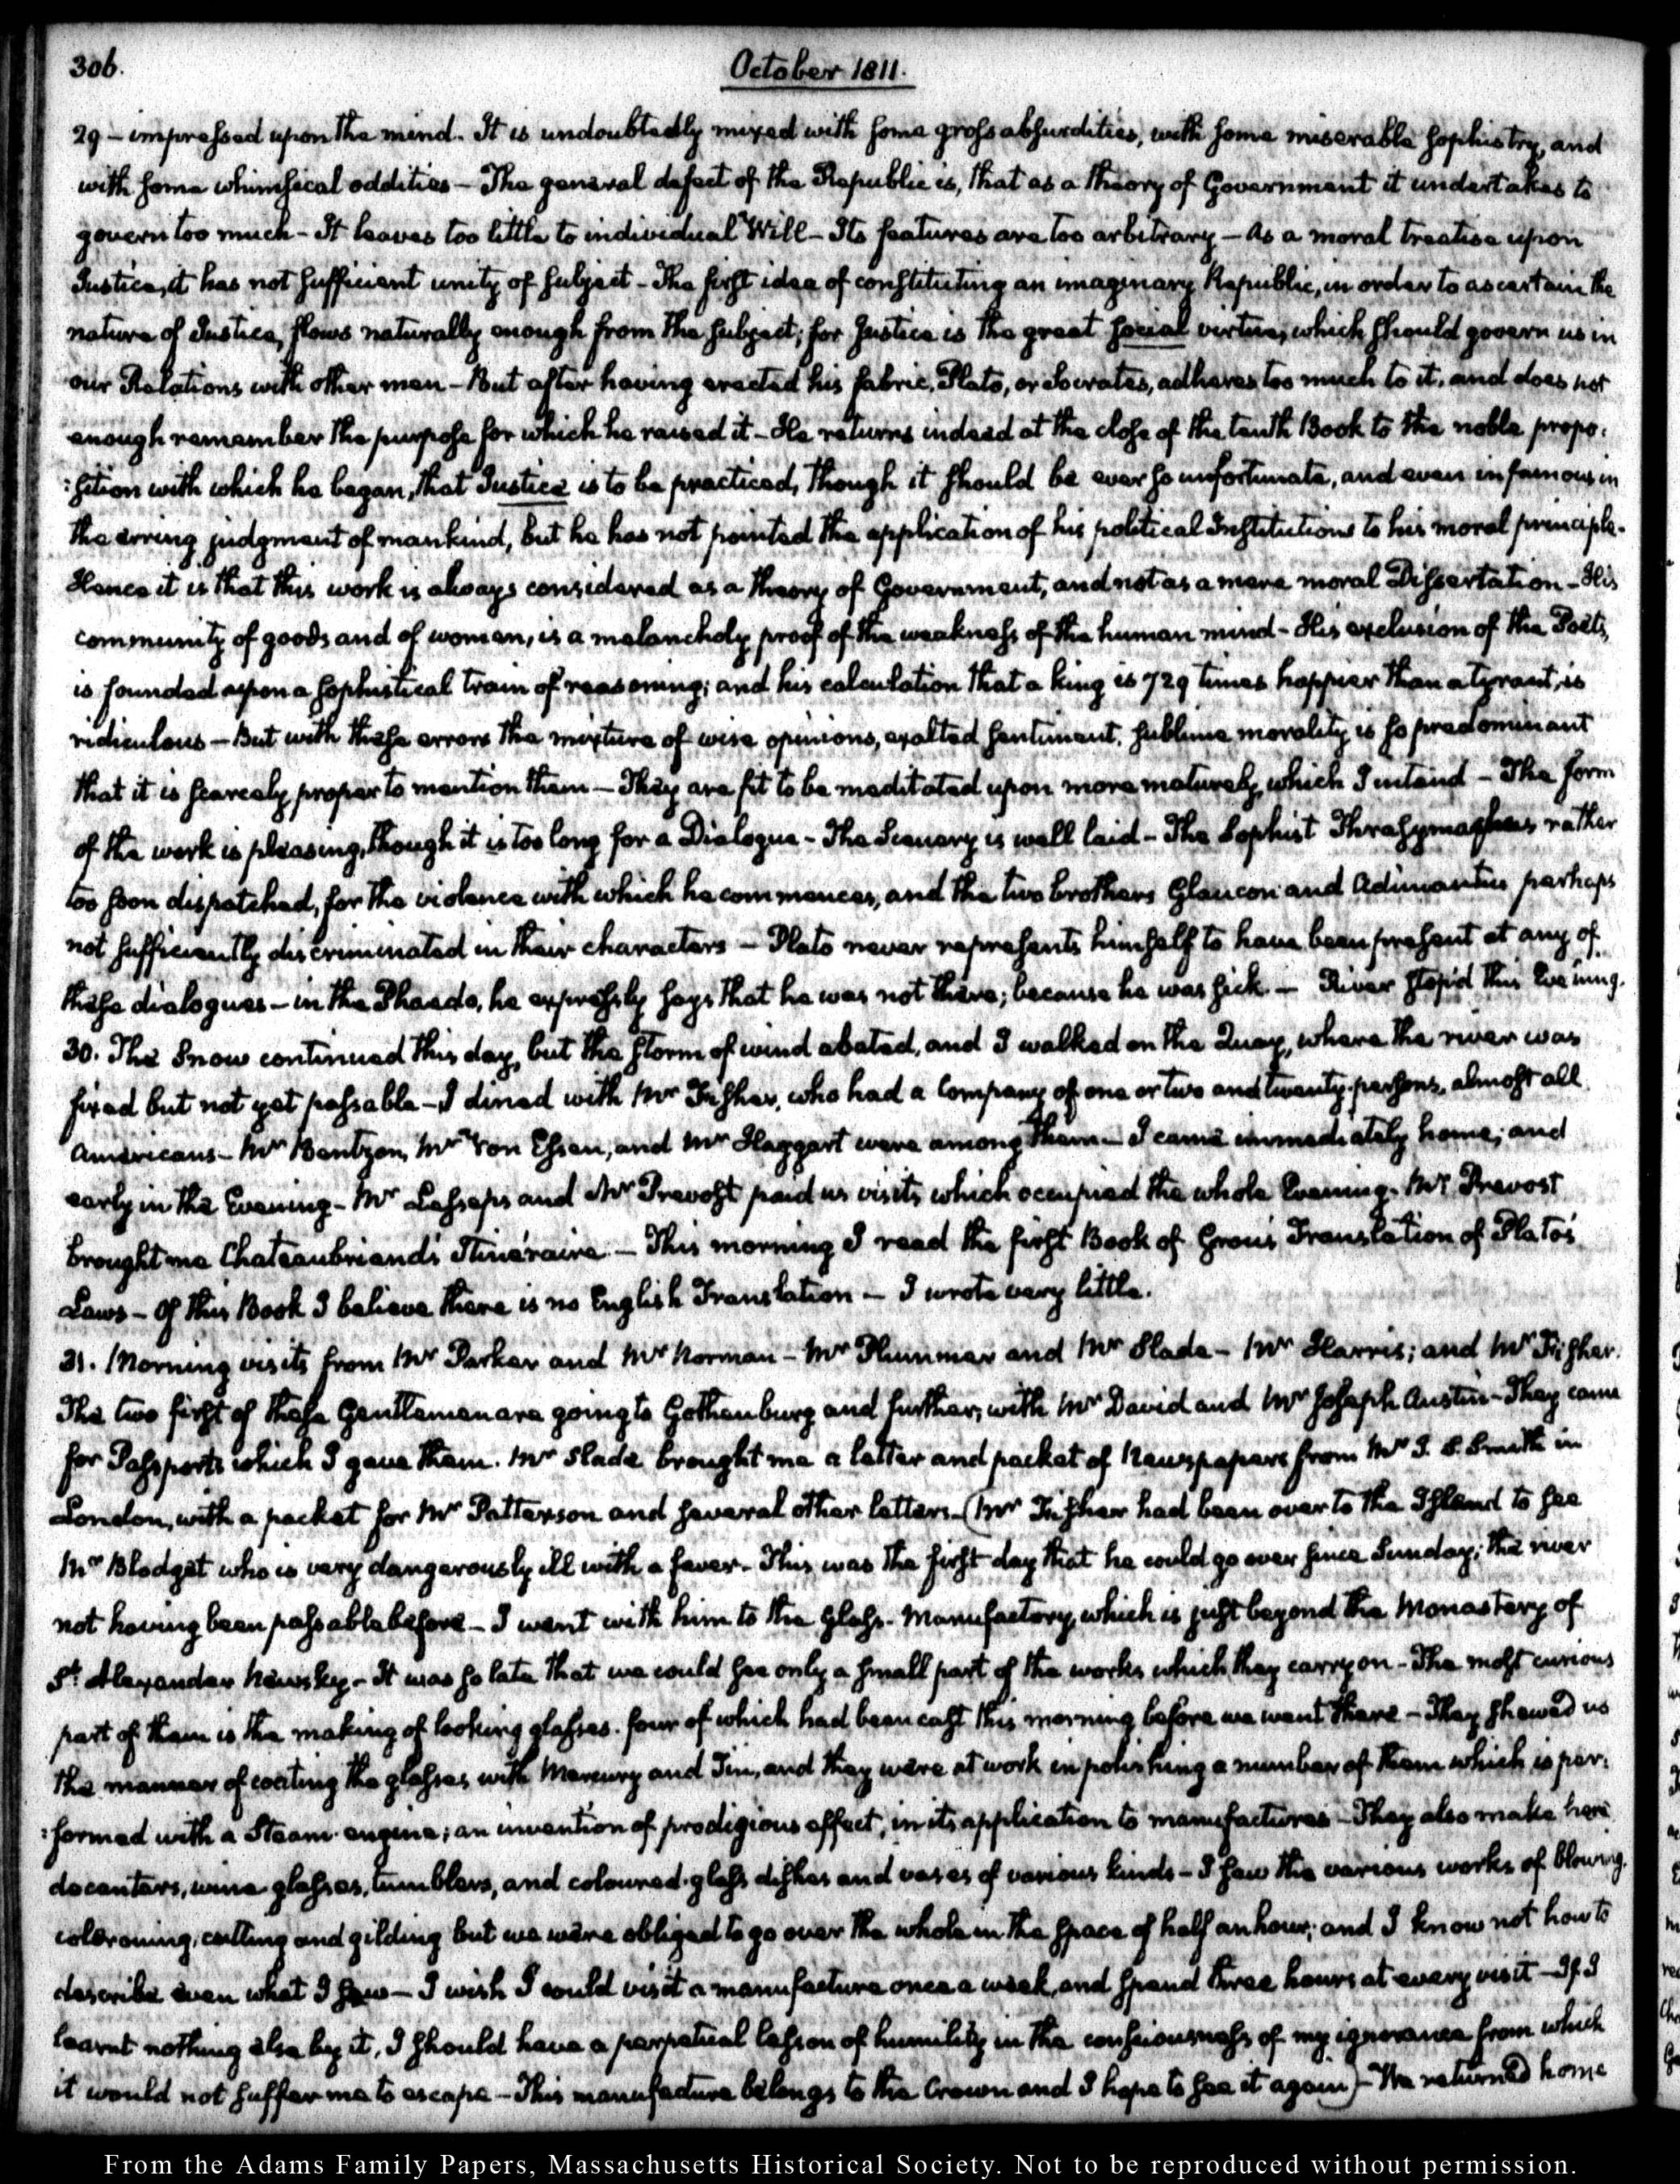 306.
October 1811.
29 – impressed upon the mind. It is undoubtedly mixed with some gross absurdities, with some miserable sophistry, and
with some whimsical oddities – The general defect of the Republic is, that as a theory of Government it undertakes to
govern too much – It leaves too little to individual Will – Its features are too arbitrary – As a moral treatise upon
Justice, it has not sufficient unity of subject – The first idea of constituting an imaginary Republic, in order to ascertain the
nature of Justice, flows naturally enough from the subject; for Justice is the great social virtue, which should govern us in
our Relations with other men – But after having erected his fabric, Plato, or Socrates, adheres too much to it, and does not
enough remember the purpose for which he raised it – He returns indeed at the close of the tenth Book to the noble propo:
:sition with which he began, that Justice is to be practiced, though it should be ever so unfortunate, and even infamous in
the erring judgment of mankind, but he has not pointed the application of his political Institutions to his moral principle.
Hence it is that this work is always considered as a theory of Government, and not as a mere moral Dissertation – His
community of goods and of women, is a melancholy proof of the weakness of the human mind – His exclusion of the Poets,
is founded upon a sophistical train of reasoning; and his calculation that a king is 729 times happier than a tyrant, is
ridiculous – But with these errors the mixture of wise opinions, exalted sentiment, sublime morality is so predominant
that it is scarcely proper to mention them – They are fit to be meditated upon more maturely, which I intend – The form
of the work is pleasing, though it is too long for a Dialogue – The Scenery is well laid – The Sophist Thrasymachus rather
too soon dispatched, for the violence with which he commences, and the two brothers Glaucon and Adimantus perhaps
not sufficiently discriminated in their characters – Plato never represents himself to have been present at any of
these dialogues – in the Phaedo, he expressly says that he was not there; because he was sick. – River stop'd this Evening.
30. The Snow continued this day, but the storm of wind abated, and I walked on the Quay, where the river was
fixed but not yet passable – I dined with Mr Fisher, who had a Company of one or two and twenty persons, almost all
Americans – Mr Bentzon, Mr Von Essen, and Mr Haggart were among them – I came immediately home; and
early in the Evening – Mr Lesseps and Mr Prevost paid us visits which occupied the whole Evening. Mr Prevost
brought me Chateaubriand's Itinéraire. – This morning I read the first Book of Grou's Translation of Plato's
Laws – Of this Book I believe there is no English Translation – I wrote very little.
31. Morning visits from Mr Parker and Mr Norman – Mr Plummer and Mr Slade – Mr Harris; and Mr Fisher.
The two first of these Gentlemen are going to Gothenburg and further, with Mr David and Mr Joseph Austin – They came
for Passports which I gave them. Mr Slade brought me a letter and packet of Newspapers from Mr J. S. Smith in
London, with a packet for Mr Patterson and several other letters – (Mr Fisher had been over to the Island to see
Mr Blodget who is very dangerously ill with a fever – This was the first day that he could go over since Sunday; the river
not having been passable before – I went with him to the Glass-Manufactory, which is just beyond the Monastery of
St. Alexander Newsky – It was so late that we could see only a small part of the works which they carry on – The most curious
part of them is the making of looking glasses. four of which had been cast this morning before we went there – They shewed us
the manner of coating the glasses with Mercury and Tin, and they were at work in polishing a number of them which is per:
:formed with a Steam-engine; an invention of prodigious effect, in its application to manufactures – They also make here
decanters, wine-glasses, tumblers, and coloured-glass dishes and vases of various kinds – I saw the various works of blowing,
colouring, cutting and gilding but we were obliged to go over the whole in the space of half an hour; and I know not how to
describe even what I saw – I wish I could visit a manufacture once a week, and spend three hours at every visit – If I
learnt nothing else by it, I should have a perpetual lesson of humility in the consciousness of my ignorance from which
it would not suffer me to escape – This manufacture belongs to the Crown and I hope to see it again) – We returned home
From the Adams Family Papers, Massachusetts Historical Society. Not to be reproduced without permission.